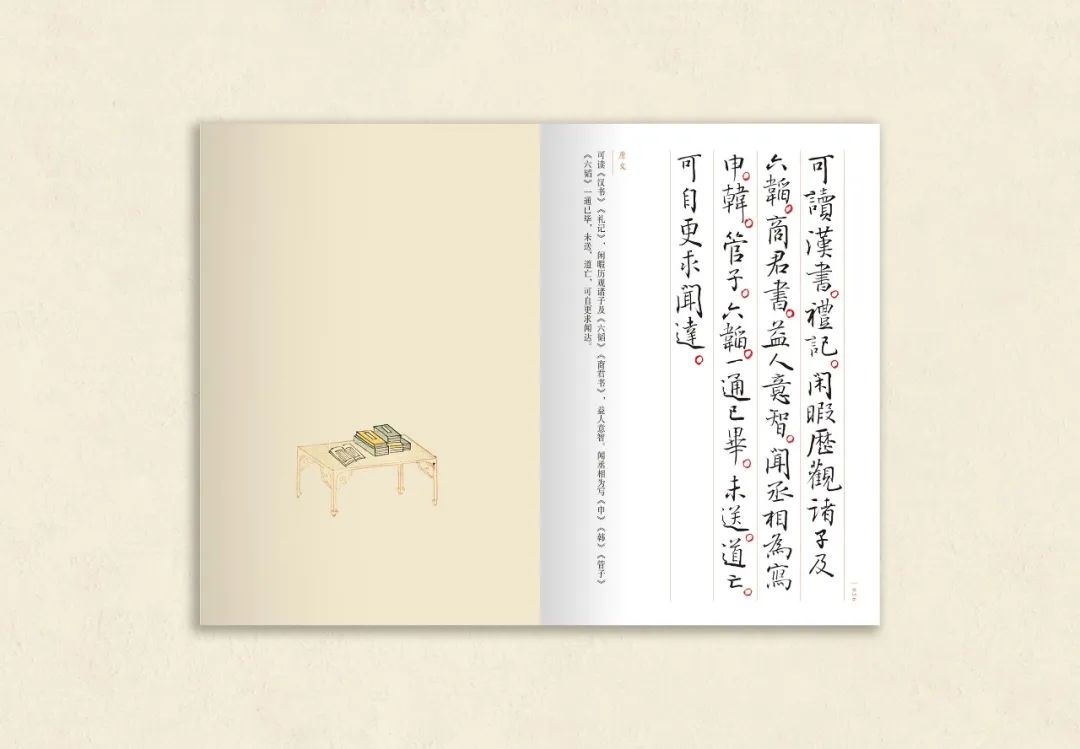 可讀漢書。禮記。閑暇歷觀諸子及
六韜。商君書。益人意智。聞丞相為寫
申。韓。管子。六韜一通已畢。未送。道亡。
可自更求聞達。
原文
可读《汉书》《礼记》，闲暇历观诸子及《六韬》《商君书》，益人意智。闻丞相为写《申》《韩》《管子》
《六韬》一通已毕，未送，道亡，可自更求闻达。